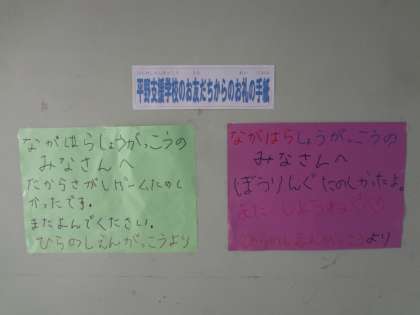 平野支援学校のお友だちからのお礼の手紙
ながはらしょうがっこうの
みなさんへ
たからさがしげーむたのし
かったです。
またよんでください。
ひらのしえんがっこうより
ながはらしょうがっこうの
みなさんへ
ぼうりんぐたのしかったよ。
ひらのしえんがっこうより